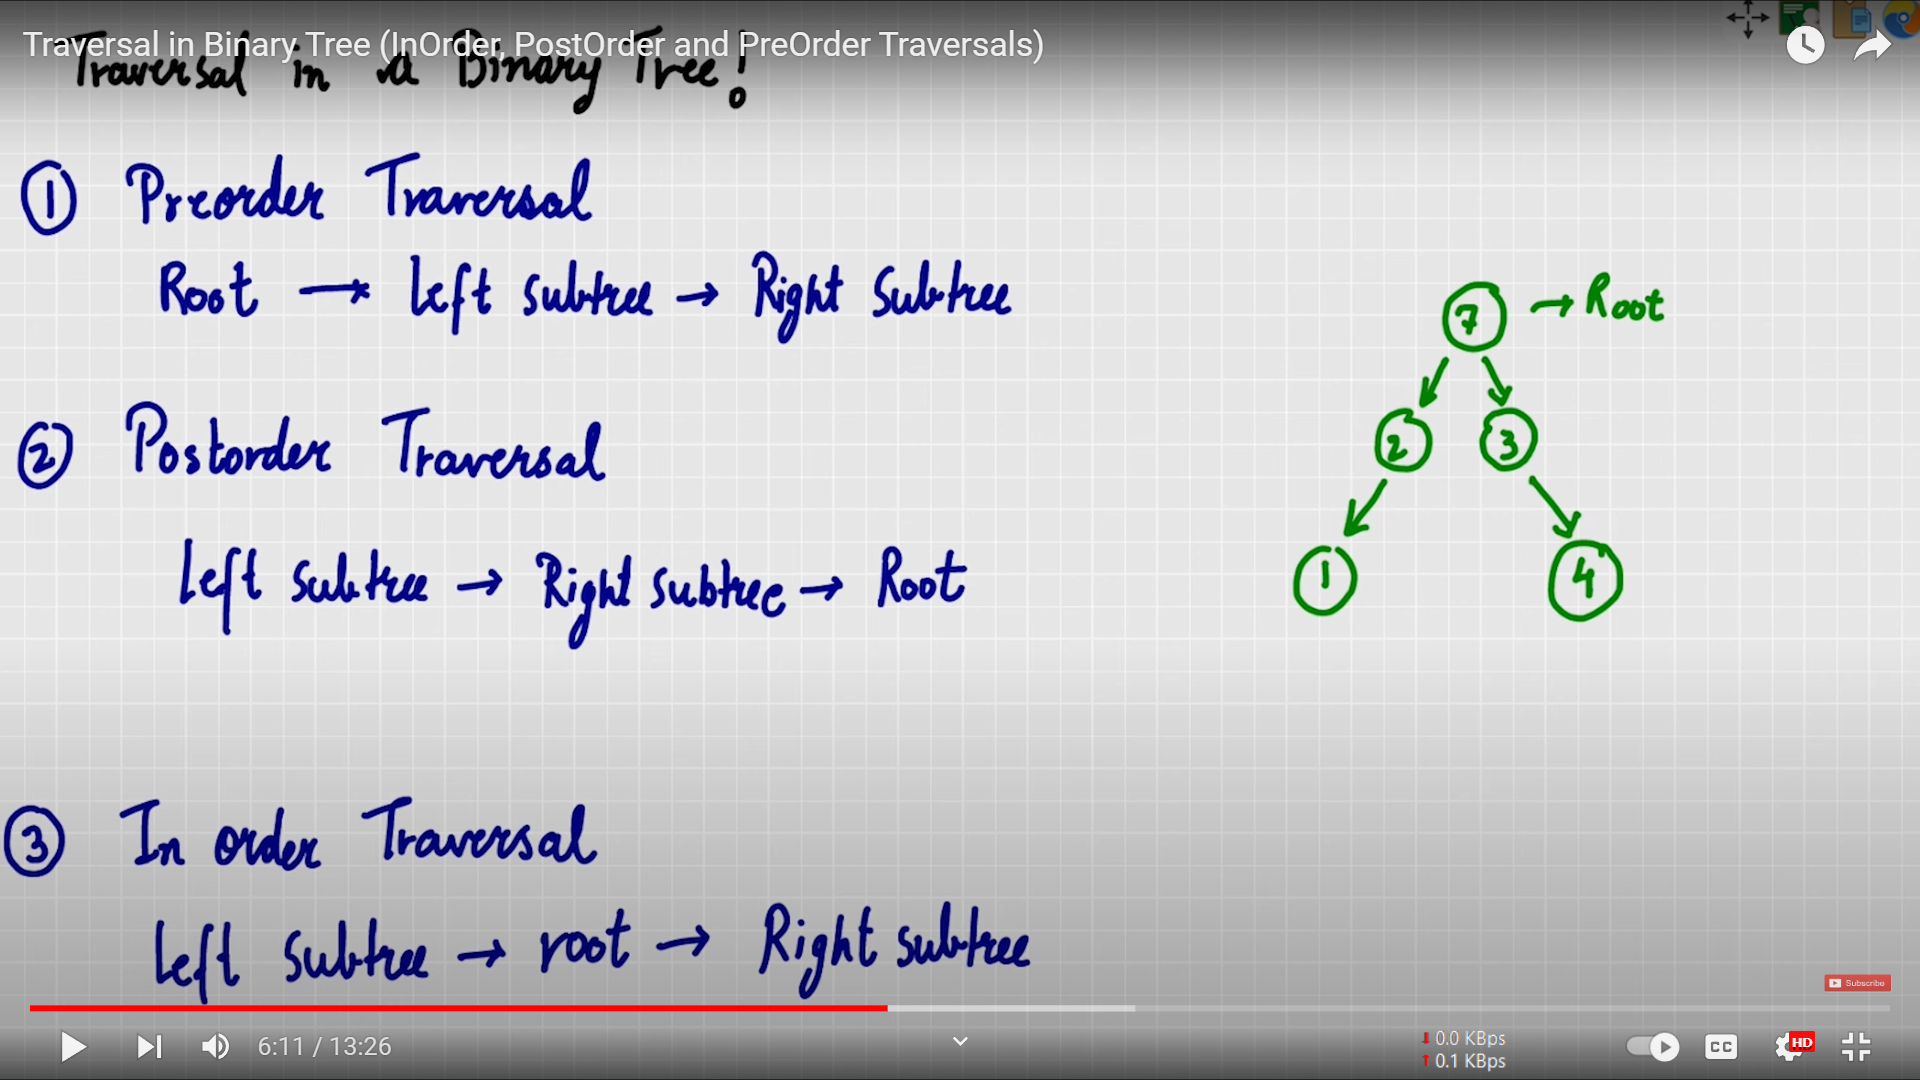 Traversal in Binary Tree (InOrder, PostOrder and PreOrder Traversals)
Traversal in a Binary Tree!
1 Preorder Traversal
Root → Left subtree → Right Subtree
7 → Root
2 3
1 4
2 Postorder Traversal
Left subtree → Right subtree → Root
3 In order Traversal
Left subtree → root → Right subtree
Subscribe
6:11 / 13:26
0.0 KBps
0.1 KBps
CC
HD